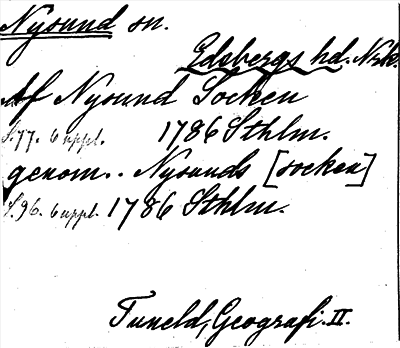 Nysund sn.
Edsbergs hd. Nrk.
Af Nysund Socken
S.77. 6 uppl. 1786 Sthlm.
genom.. Nysunds [socken]
S.96. 6 uppl. 1786 Sthlm.
Tuneld, Geografi. II.